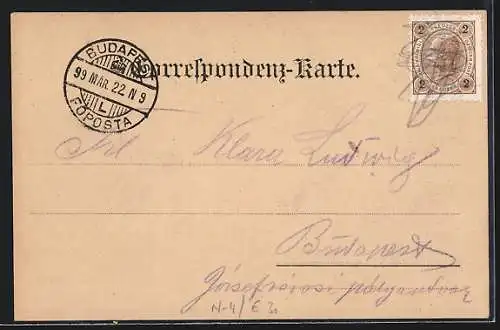 BUDAPEST
99 MAR. 22 N 9
L
FŐPOSTA
Correspondenz-Karte.
2 2
2 2
Frl Klara Ludwig
Budapest
Józsefvárosi pályaudvar
N-4/E